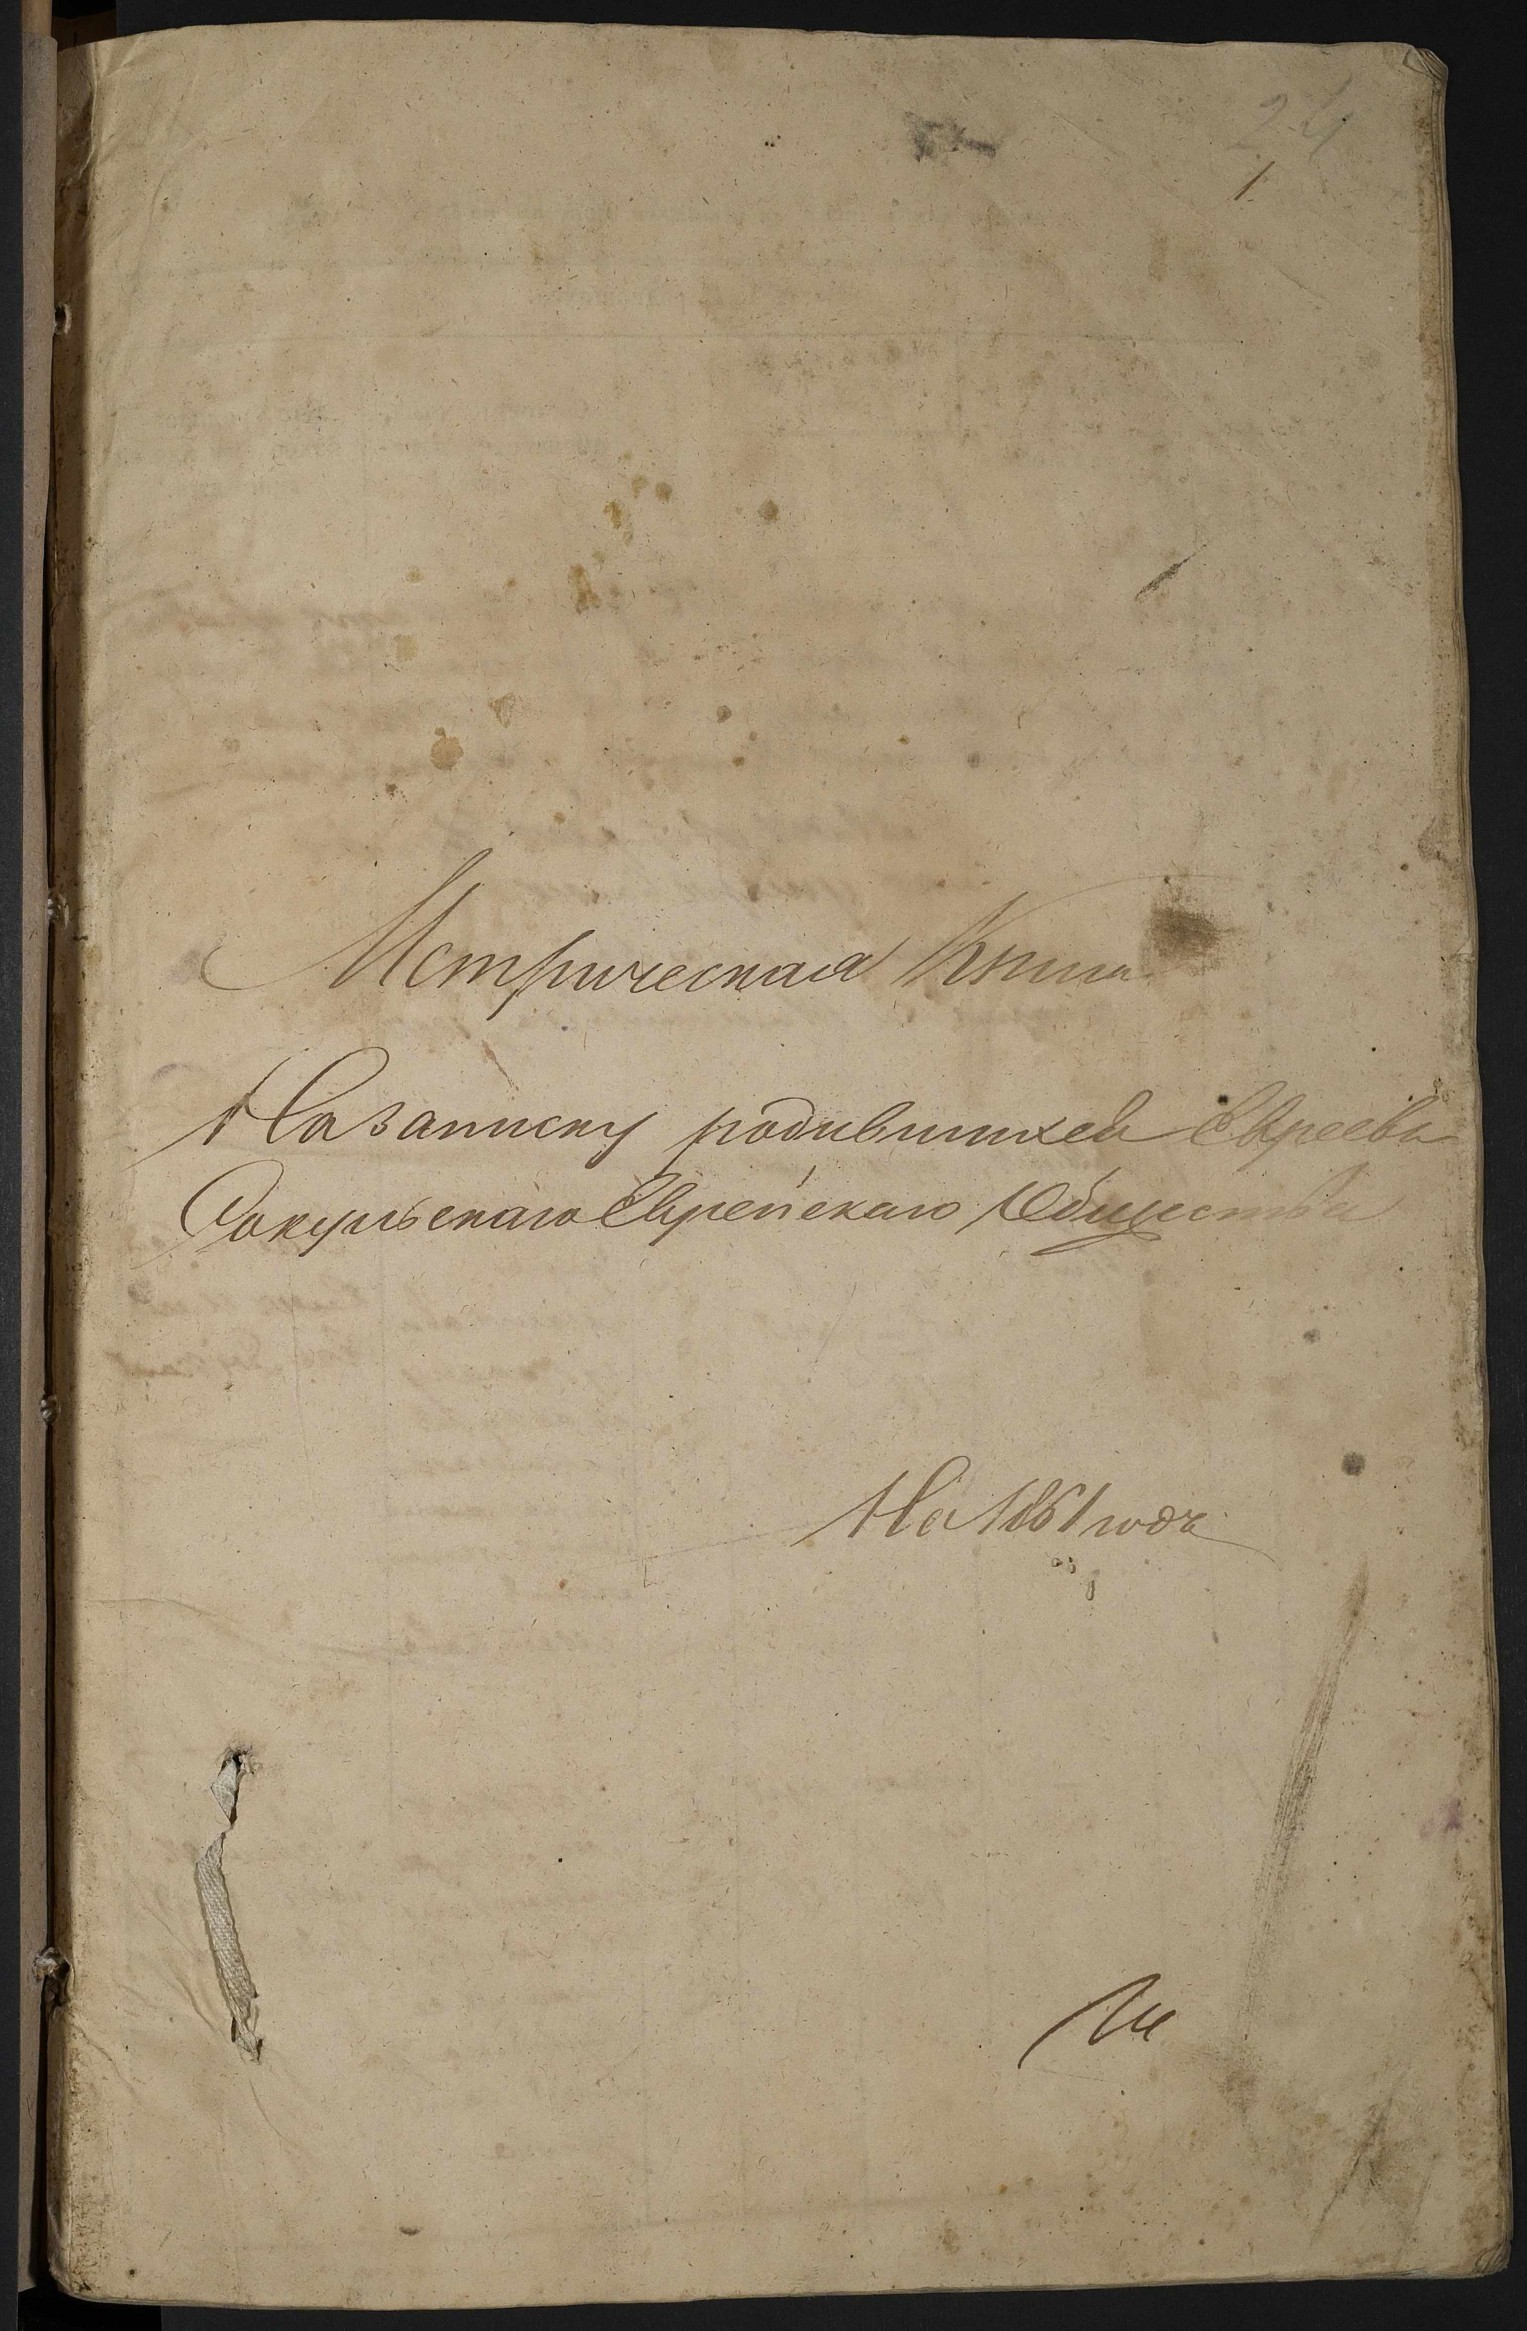 24
1.
Метрическая Книга
На записку родившихся Евреевъ
Сокульскаго Еврейскаго Общества
На 1861 годъ